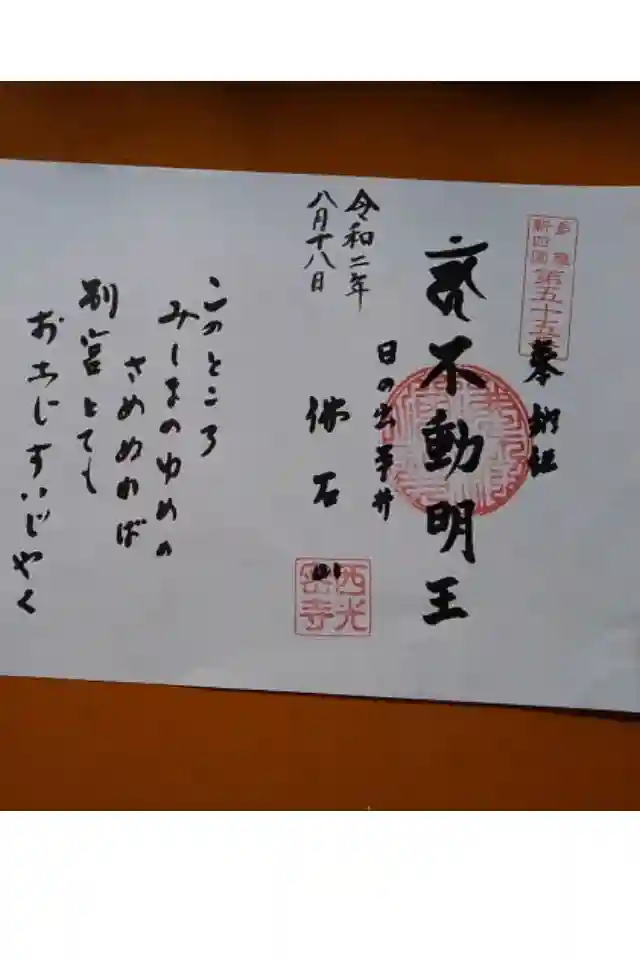 多摩
新四国
第五十五番
奉納経
不動明王
日の出平井
令和二年
八月十八日
佛石山
西光
密寺
このところ
みしまのゆめの
さめぬれば
別宮とても
おなじすいじやく